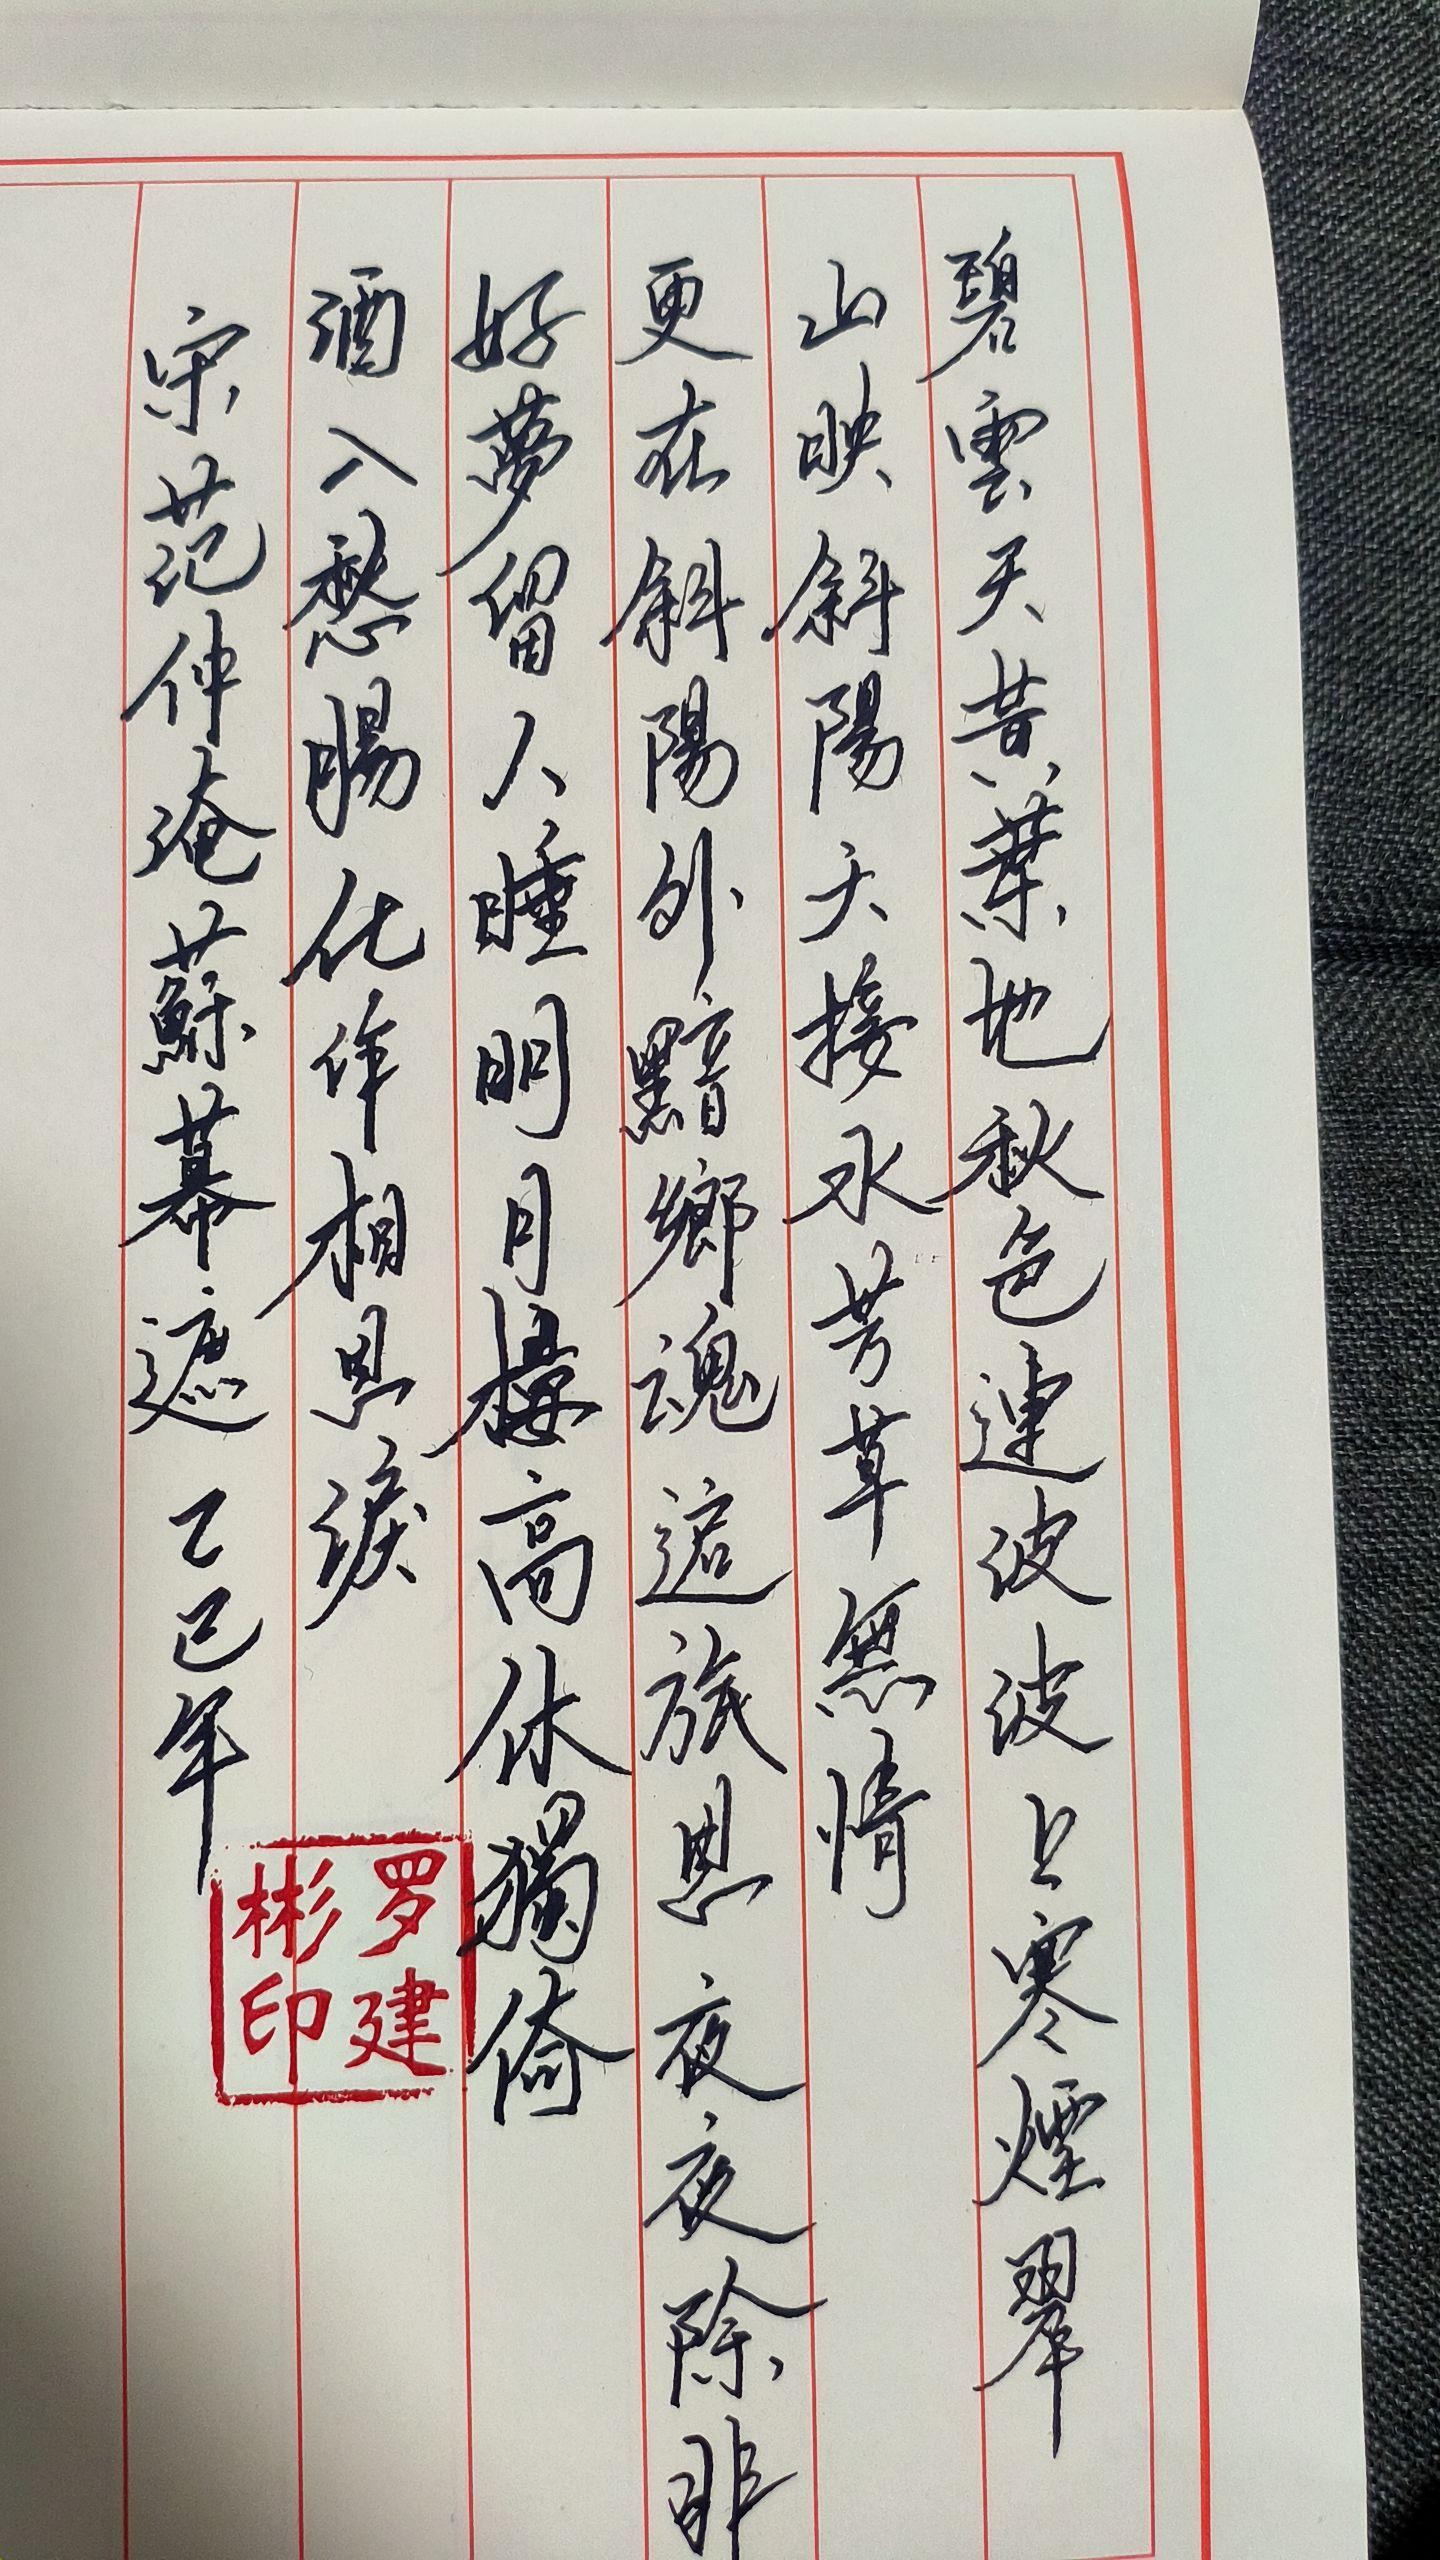 碧雲天黄葉地秋色連波波上寒煙翠
山映斜陽天接水芳草無情
更在斜陽外黯鄉魂追旅思夜夜除非
好夢留人睡明月樓高休獨倚
酒入愁腸化作相思淚
宋范仲淹蘇幕遮 乙巳年
罗建
彬印